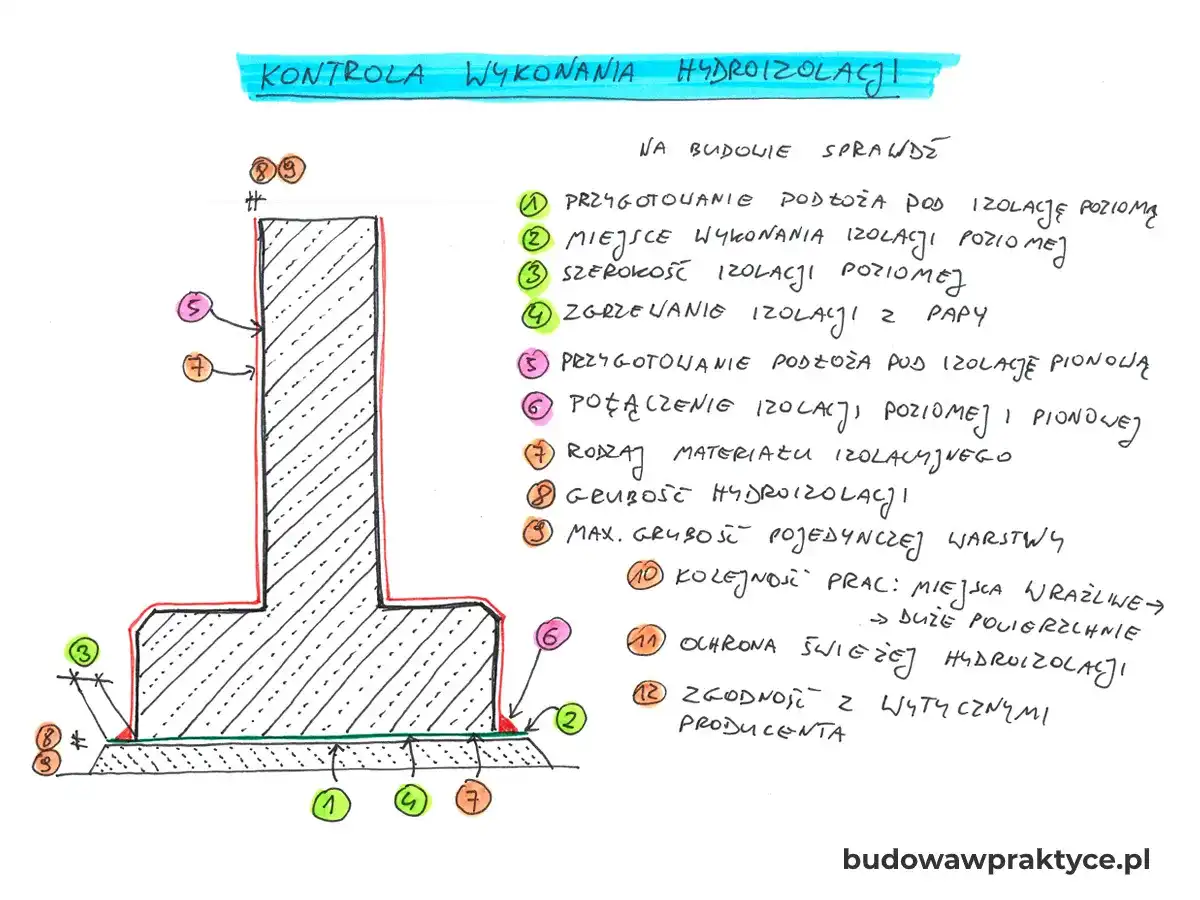 KONTROLA WYKONANIA HYDROIZOLACJI
NA BUDOWIE SPRAWDŹ
8 9
1 PRZYGOTOWANIE PODŁOŻA POD IZOLACJĘ POZIOMĄ
2 MIEJSCE WYKONANIA IZOLACJI POZIOMEJ
3 SZEROKOŚĆ IZOLACJI POZIOMEJ
4 ZGRZEWANIE IZOLACJI Z PAPY
5 PRZYGOTOWANIE PODŁOŻA POD IZOLACJĘ PIONOWĄ
6 POŁĄCZENIE IZOLACJI POZIOMEJ I PIONOWEJ
7 RODZAJ MATERIAŁU IZOLACYJNEGO
8 GRUBOŚĆ HYDROIZOLACJI
9 MAX. GRUBOŚĆ POJEDYNCZEJ WARSTWY
10 KOLEJNOŚĆ PRAC: MIEJSCA WRAŻLIWE →
→ DUŻE POWIERZCHNIE
11 OCHRONA ŚWIEŻEJ HYDROIZOLACJI
12 ZGODNOŚĆ Z WYTYCZNYMI
PRODUCENTA
5
7
3
6
2
8
9
1 4 7
budowawpraktyce.pl